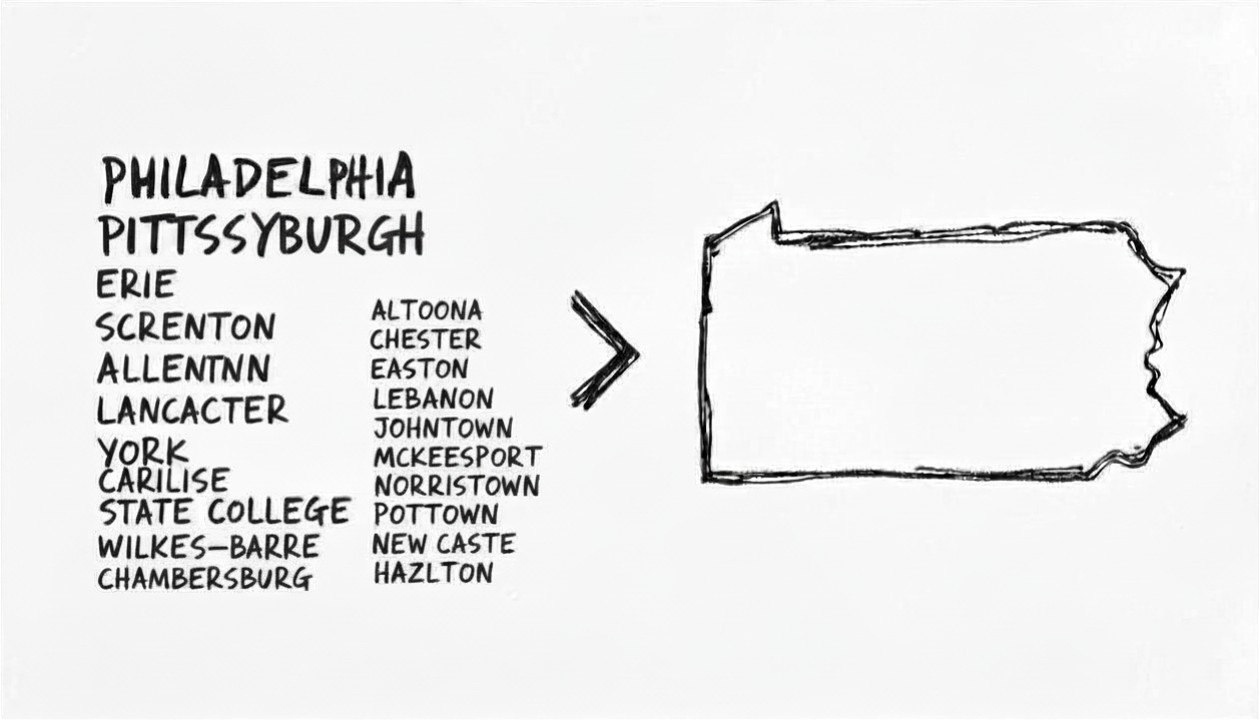 PHILADELPHIA
PITTSSYBURGH
ERIE
SCRENTON
ALLENTNN
LANCACTER
YORK
CARILISE
STATE COLLEGE
WILKES–BARRE
CHAMBERSBURG
ALTOONA
CHESTER
EASTON
LEBANON
JOHNTOWN
MCKEESPORT
NORRISTOWN
POTTOWN
NEW CASTE
HAZLTON